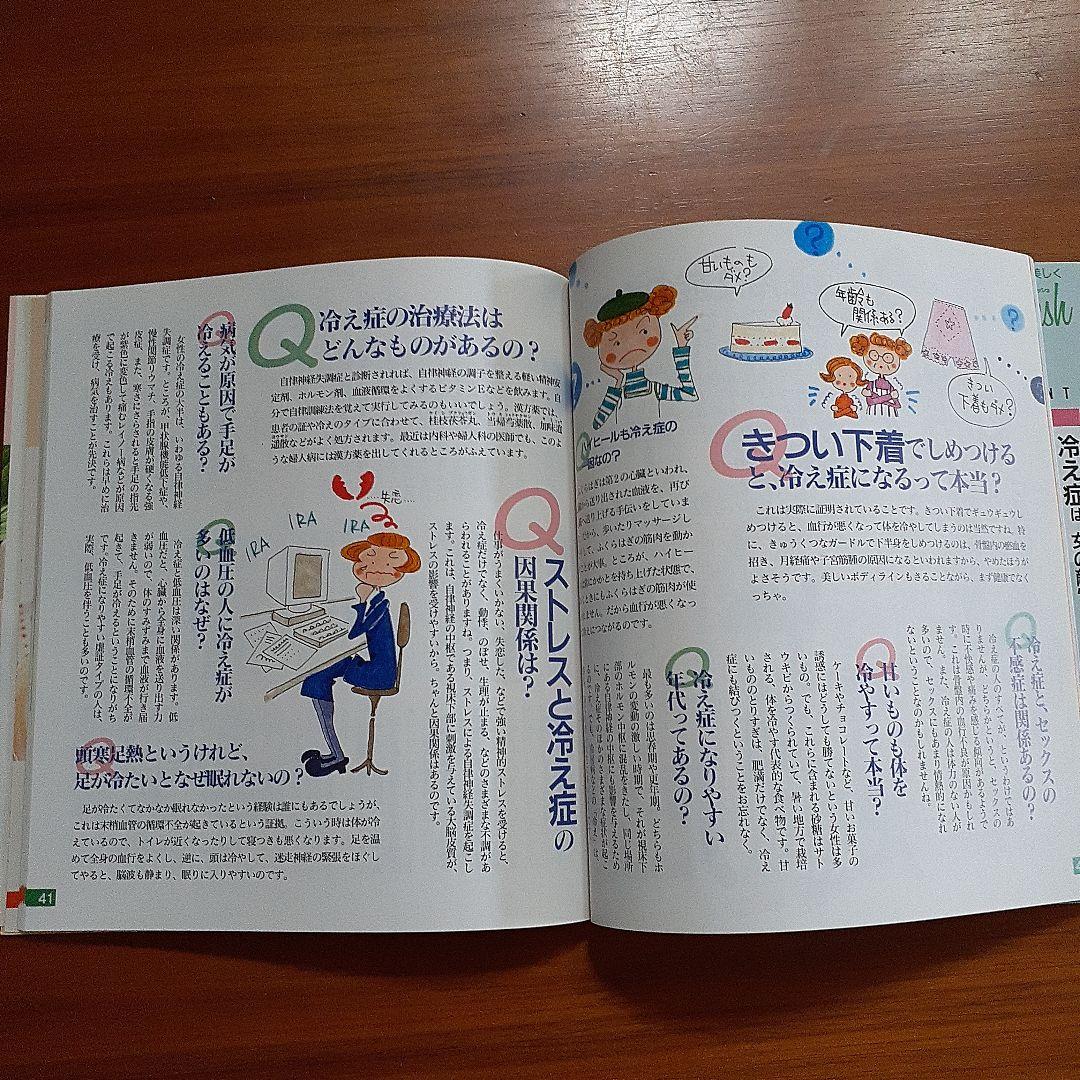 Q 冷え症の治療法は
どんなものがあるの?
自律神経失調症と診断されれば、自律神経の調子を整える軽い精神安
定剤、ホルモン剤、血液循環をよくするビタミンEなどを飲みます。自
分で自律訓練法を覚えて実行してみるのもいいでしょう。漢方薬では、
患者の証や冷えのタイプに合わせて、桂枝茯苓丸、当帰芍薬散、加味逍
遥散などがよく処方されます。最近は内科や婦人科の医師でも、このよ
うな婦人病には漢方薬を出してくれるところがふえています。
Q 病気が原因で手足が
冷えることもある?
女性の冷え症の大半は、いわゆる自律神経
失調症です。ところが、甲状腺機能低下症や、
慢性関節リウマチ、手指の皮膚が硬くなる強
皮症、また、寒さにさらされると手足の指先
が紫色に変色して痛むレイノー病などが原因
で起こる冷えもあります。これらは早めに治
療を受け、病気を治すことが先決です。
Q ストレスと冷え症の
因果関係は?
仕事がうまくいかない、失恋した、などで強い精神的ストレスを受けると、
冷え症だけでなく、動悸、のぼせ、生理が止まる、などのさまざまな不調があ
らわれることがありますね。つまり、ストレスによる自律神経失調症を起こし
ます。これは、自律神経の中枢である視床下部に刺激を与えている大脳皮質が、
ストレスの影響を受けやすいから。ちゃんと因果関係はあるのです。
失恋…
IRA
IRA
IRA
Q 低血圧の人に冷え症が
多いのはなぜ?
冷え症と低血圧は深い関係があります。低
血圧だと、心臓から全身に血液を送り出す力
が弱いので、体のすみずみまで血液が行き届
きません。そのために末梢血管の循環不全が
起きて、手足が冷えるということになりがち
です。冷え症になりやすい虚証タイプの人は、
実際、低血圧を伴うことも多いのです。
Q 頭寒足熱というけれど、
足が冷たいとなぜ眠れないの?
足が冷たくてなかなか眠れなかったという経験は誰にもあるでしょうが、
これは末梢血管の循環不全が起きているという証拠。こういう時は体が冷
えているので、トイレが近くなったりして寝つきも悪くなります。足を温
めて全身の血行をよくし、逆に、頭は冷やして、迷走神経の緊張をほぐし
てやると、脳波も静まり、眠りに入りやすいのです。
41
甘いものも
ダメ?
年齢も
関係ある?
きつい
下着もダメ?
Q きつい下着でしめつける
と、冷え症になるって本当?
これは実際に証明されていることです。きつい下着でギュウギュウし
めつけると、血行が悪くなって体を冷やしてしまうのは当然ですね。特
に、きゅうくつなガードルで下半身をしめつけるのは、骨盤内の鬱血を
招き、月経痛や子宮筋腫の原因になるといわれますから、やめたほうが
よさそうです。美しいボディラインもさることながら、まず健康でなく
っちゃ。
イヒールも冷え症の
因なの?
らはぎは第2の心臓といわれ、
から送り出された血液を、再び
へ送り上げる手伝いをしていま
だから、歩いたりマッサージし
て、ふくらはぎの筋肉を動か
ことが大事。ところが、ハイヒー
常にかかとを持ち上げた状態で、
ときにもふくらはぎの筋肉が使
ません。だから血行が悪くなっ
冷えにつながるのです。
Q 冷え症と、セックスの
不感症は関係あるの?
冷え症の人のすべてが、というわけではあ
りませんが、どちらかというと、セックスの
時に不快感や痛みを感じる傾向があるようで
す。これは骨盤内の血行不良が原因かもしれ
ません。また、冷え症の人は体力のない人が
多いので、セックスにもあまり情熱的になれ
ないということなのかもしれませんね。
Q 甘いものも体を
冷やすって本当?
ケーキやチョコレートなど、甘いお菓子の
誘惑にはどうしても勝てないという女性は多
いもの。でも、これらに含まれる砂糖はサト
ウキビからつくられていて、暑い地方で栽培
される、体を冷やす代表的な食べ物です。甘
いもののとりすぎは、肥満だけでなく、冷え
症にも結びつくということをお忘れなく。
Q 冷え症になりやすい
年代ってあるの?
最も多いのは思春期や更年期。どちらもホ
ルモンの変動の激しい時期で、それが視床下
部のホルモン中枢に影響を与えるため
美しく
sh
冷え症は女の